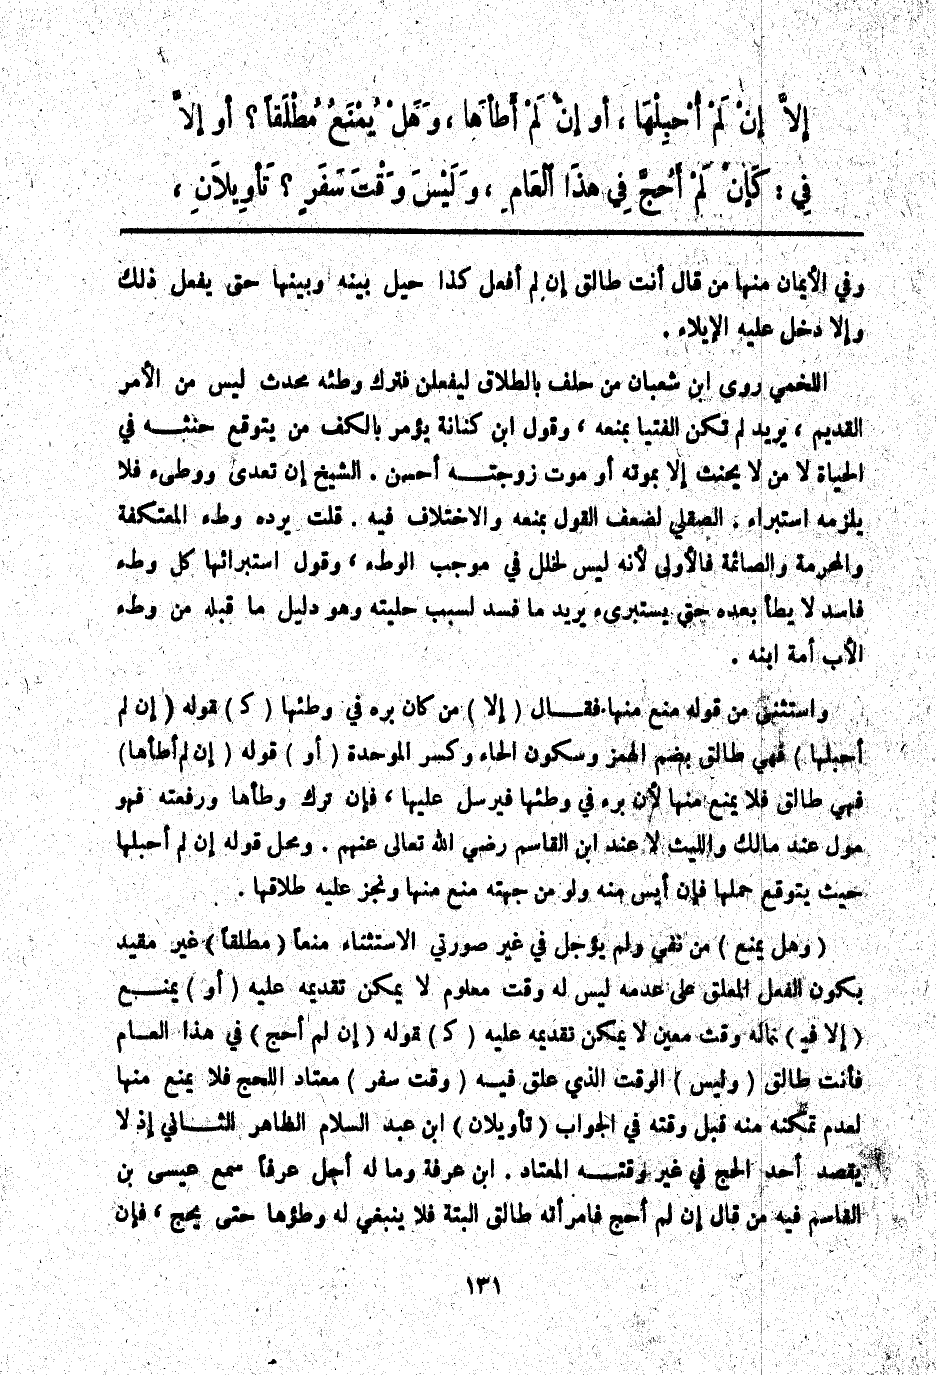 إِلاَّ إِنْ لَمْ أُحْبِلْهَا ، أو إِنْ لَمْ أَطأْهَا ، وَهَلْ يُمْنَعُ مُطْلَقاً ؟ أو إلاَّ
فِي : كَإِنْ لَمْ أَحُجَّ فِي هذَا اَلْعَامِ ، وَلَيْسَ وَقْتَ سَفَرٍ ؟ تَأْوِيلاَنِ ،
وفي الأيمان منها من قال أنت طالق إن لم أفعل كذا حيل بينه وبينها حتى يفعل ذلك
وإلا دخل عليه الإيلاء .
اللخمي روى ابن شعبان من حلف بالطلاق ليفعلن فترك وطئه محدث ليس من الأمر
القديم ، يريد لم تكن الفتيا بمنعه ، وقول ابن كنانة يؤمر بالكف من يتوقع حنثــه في
الحياة لا من لا يحنث إلا بموته أو موت زوجتــه أحسن . الشيخ إن تعدى ووطىء فلا
يلزمه استبراء . الصقلي لضعف القول بمنعه والاختلاف فيه . قلت يرده وطء المعتكفة
والمحرمة والصائمة فالأولى لأنه ليس لخلل في موجب الوطء ، وقول استبرائها كل وطء
فاسد لا يطأ بعده حتى يستبرىء يريد ما فسد لسبب حليته وهو دليل ما قبله من وطء
الأب أمة ابنه .
واستثنى من قوله منع منها فقــال ( إلا ) من كان بره في وطئها ( كـ ) قوله ( إن لم
أحبلها ) فهي طالق بضم الهمز وسكون الحاء وكسر الموحدة ( أو ) قوله ( إن لم أطأها )
فهي طالق فلا يمنع منها لأن بره في وطئها فيرسل عليها ، فإن ترك وطأها ورفعته فهو
مول عند مالك والليث لا عند ابن القاسم رضي الله تعالى عنهم . ومحل قوله إن لم أحبلها
حيث يتوقع حملها فإن أيس منه ولو من جهته منع منها ونجز عليه طلاقها .
( وهل يمنع ) من نفي ولم يؤجل في غير صورتي الاستثناء منعاً ( مطلقاً ) غير مقيد
بكون الفعل المعلق على عدمه ليس له وقت معلوم لا يمكن تقديمه عليه ( أو ) يمنــع
( إلا في ) ماله وقت معين لا يمكن تقديمه عليه ( كـ ) قوله ( إن لم أحج ) في هذا العــام
فأنت طالق ( وليس ) الوقت الذي علق فيــه ( وقت سفر ) معتاد اللحج فلا يمنع منها
لعدم تمكنه منه قبل وقته في الجواب ( تأويلان ) ابن عبد السلام الظاهر الثــاني إذ لا
يقصد أحد الحج في غير وقتــه المعتاد . ابن عرفة وما له أجل عرفاً سمع عيسى بن
القاسم فيه من قال إن لم أحج فامرأته طالق البتة فلا ينبغي له وطؤها حتى يحج ، فإن
١٣١